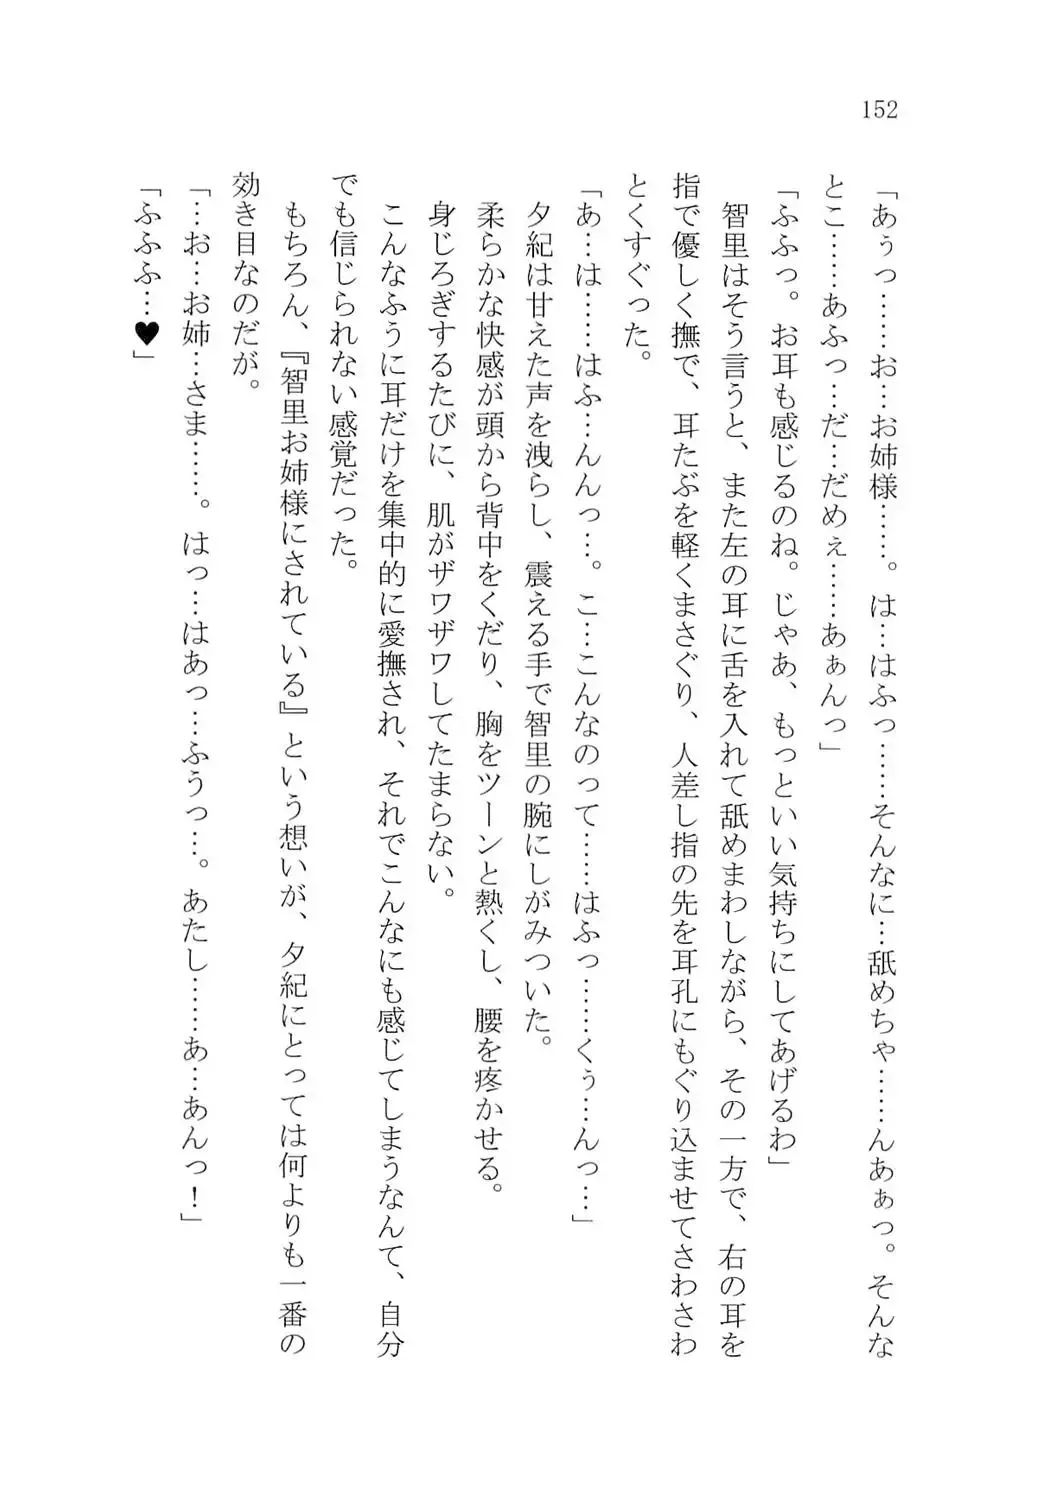 152
「あぅっ……お…お姉様……。は…はふっ……そんなに…舐めちゃ……んあぁっ。そんな
とこ……あふっ…だ…だめぇ……あぁんっ」
「ふふっ。お耳も感じるのね。じゃあ、もっといい気持ちにしてあげるわ」
　智里はそう言うと、また左の耳に舌を入れて舐めまわしながら、その一方で、右の耳を
指で優しく撫で、耳たぶを軽くまさぐり、人差し指の先を耳孔にもぐり込ませてさわさわ
とくすぐった。
「あ…は……はふ…んんっ…。こ…こんなのって……はふっ……くぅ…んっ…」
　夕紀は甘えた声を洩らし、震える手で智里の腕にしがみついた。
　柔らかな快感が頭から背中をくだり、胸をツーンと熱くし、腰を疼かせる。
　身じろぎするたびに、肌がザワザワしてたまらない。
　こんなふうに耳だけを集中的に愛撫され、それでこんなにも感じてしまうなんて、自分
でも信じられない感覚だった。
　もちろん、『智里お姉様にされている』という想いが、夕紀にとっては何よりも一番の
効き目なのだが。
「…お…お姉…さま……。はっ…はあっ…ふうっ…。あたし……あ…あんっ！」
「ふふふ…♥」